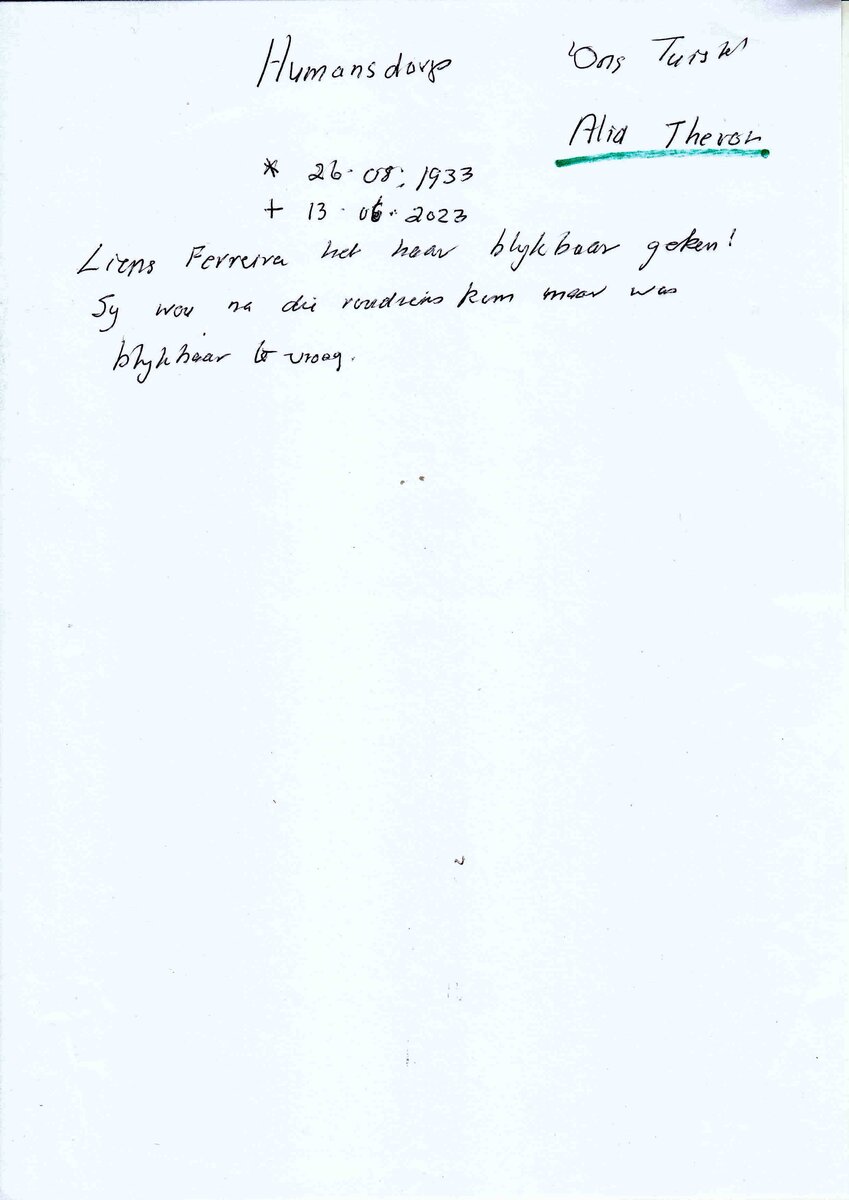 Humansdorp
Ons Tuiste
Alid Theron
* 26.08.1933
+ 13.06.2023
Ferreira het haar blykbaar geken!
Sy wou na die roudiens kom maar was
blykbaar te vroeg.